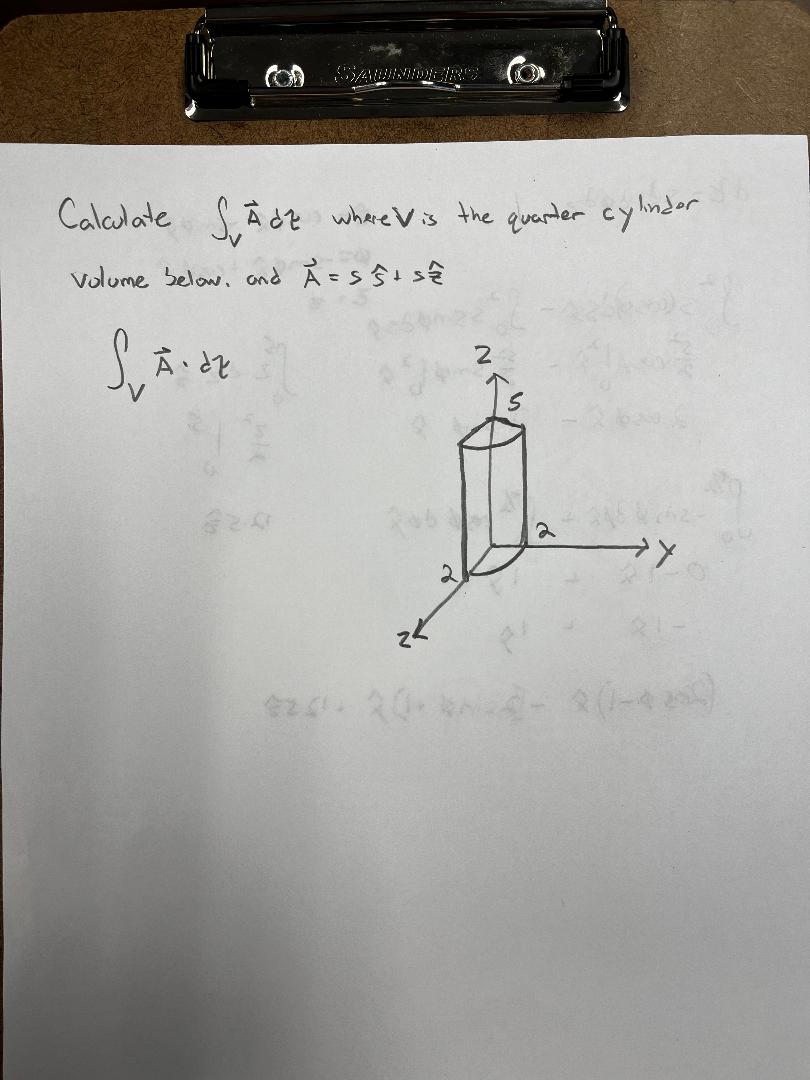 SAUNDERS
Calculate ∫_V A⃗ dτ where V is the quarter cylinder
volume below. and A⃗ = s ŝ + s ẑ
∫_V A⃗ · dτ
Z
5
2
Y
2
Z